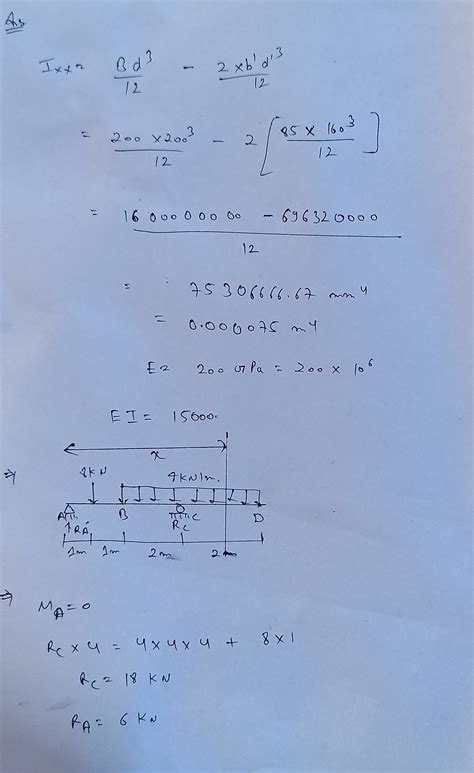 Ixx = Bd³/12 - 2xb'd'³/12
= 200 x200³/12 - 2[85 x 160³/12]
= 16 000000 00 - 696320000/12
= 75306666.67 mm⁴
= 0.000075 m⁴
E = 200 GPa = 200 x 10⁶
EI = 15000.
x
⇒ 8KN 4KN/m.
A B C D
↑RA Rc
1m 1m 2m 2m
⇒ MA=0
Rc x 4 = 4x4x4 + 8x1
Rc = 18 KN
RA = 6 KN